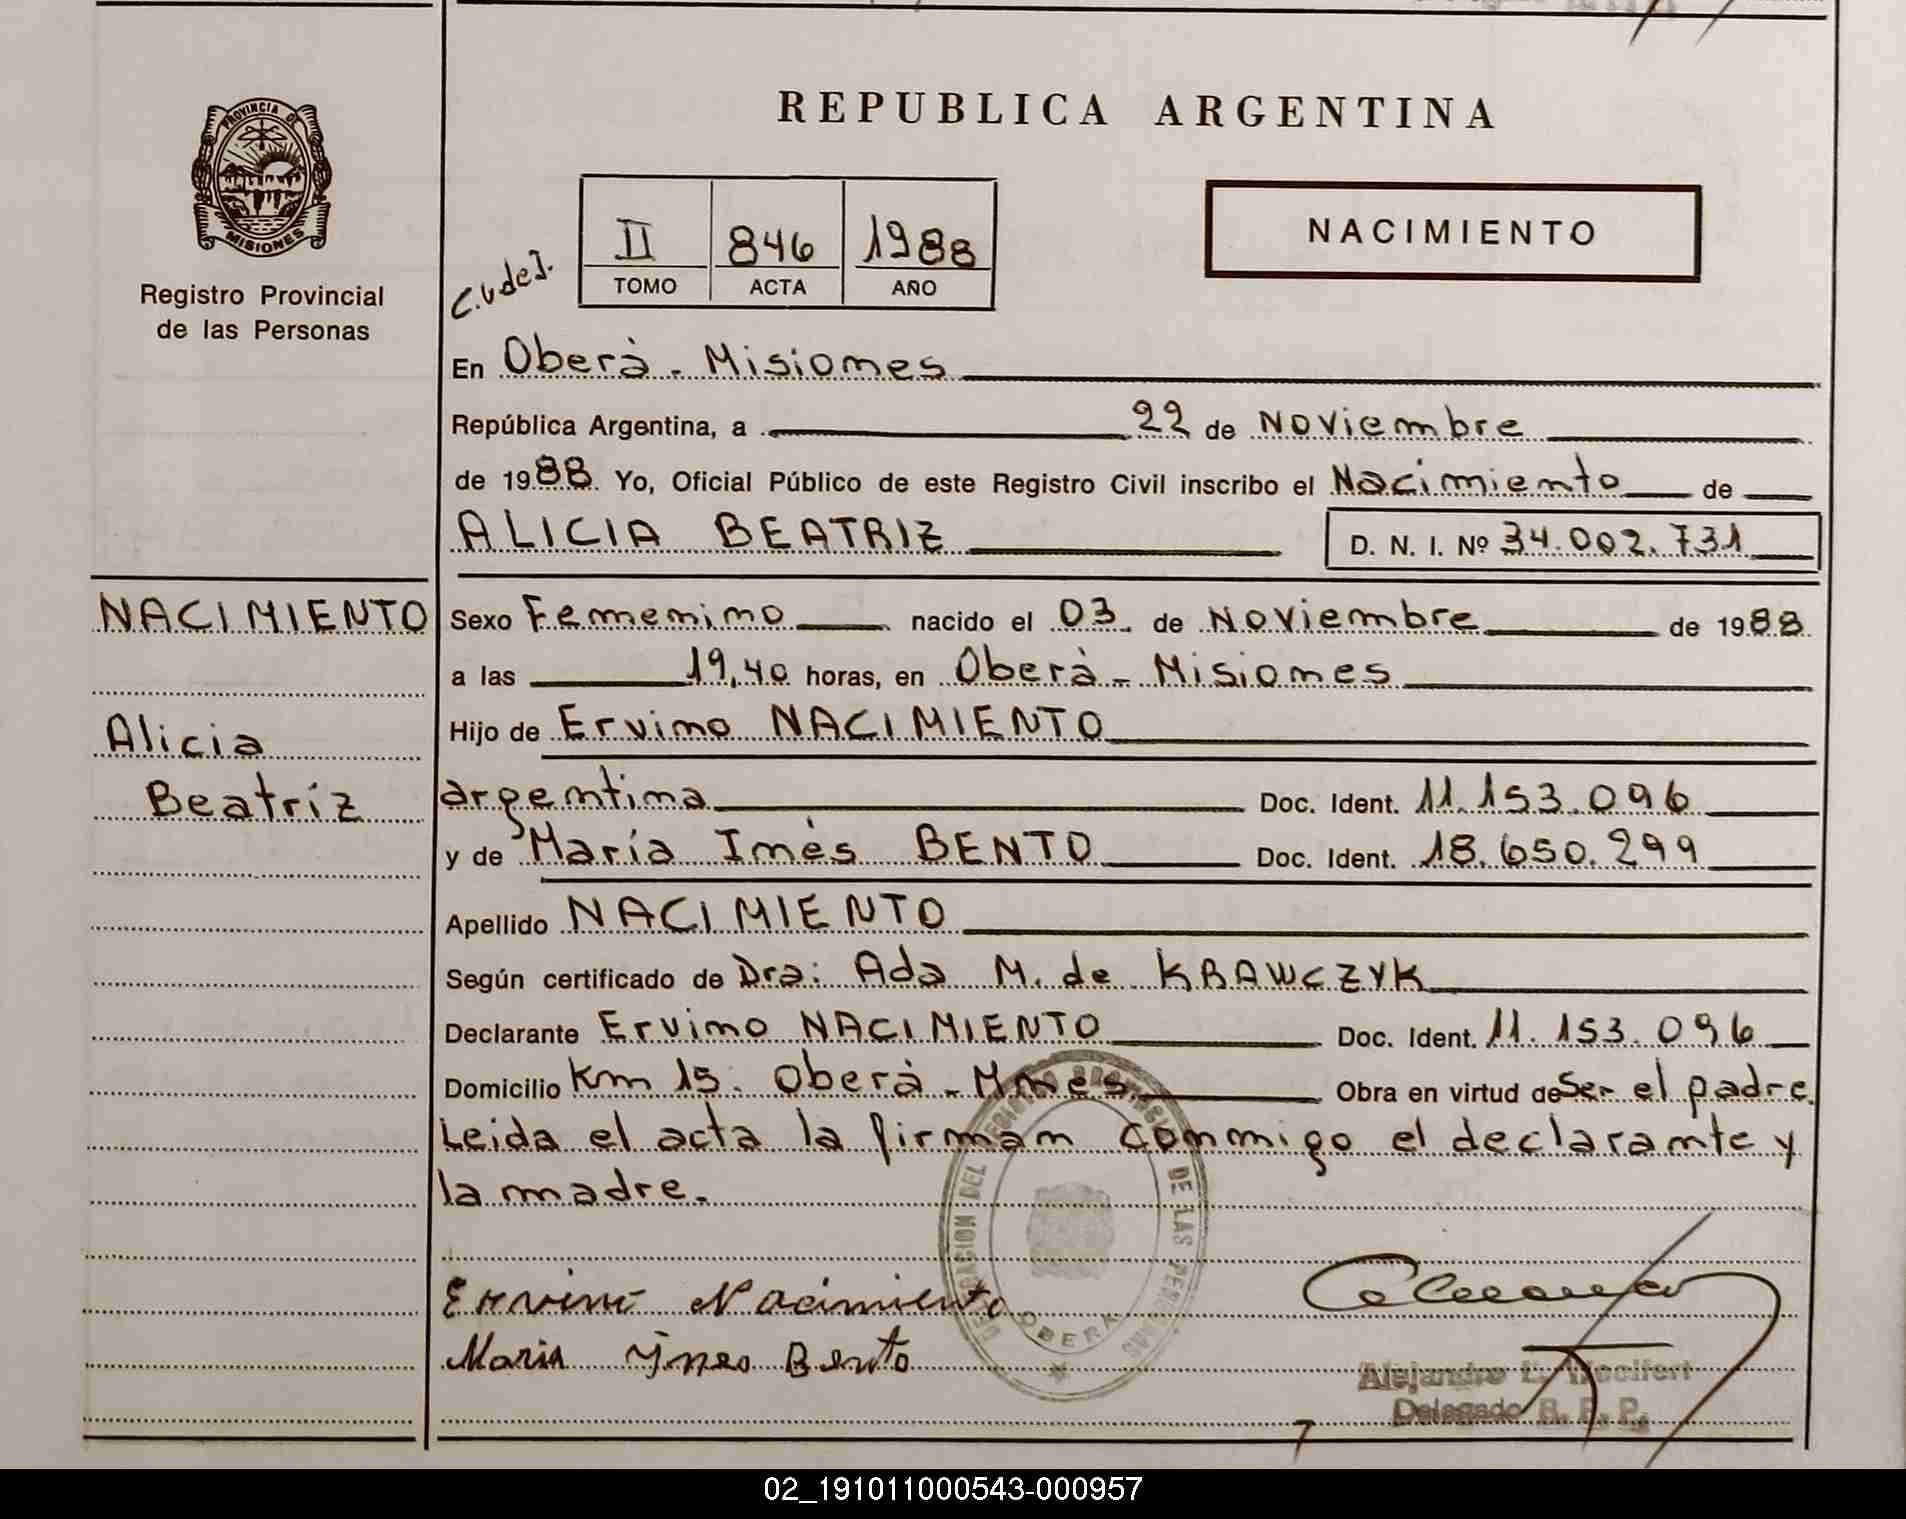 PROVINCIA DE
MISIONES
Registro Provincial
de las Personas
REPUBLICA ARGENTINA
II 846 1988
TOMO ACTA AÑO
NACIMIENTO
En Oberà - Misiones
República Argentina, a 22 de Noviembre
de 1988 Yo, Oficial Público de este Registro Civil inscribo el Nacimiento de
ALICIA BEATRIZ D. N. I. Nº 34.002.731
NACIMIENTO
Alicia
Beatriz
Sexo Femenino nacido el 03 de Noviembre de 1988
a las 19,40 horas, en Oberà - Misiones
Hijo de Ervino NACIMIENTO
argentina Doc. Ident. 11.153.096
y de María Inés BENTO Doc. Ident. 18.650.299
Apellido NACIMIENTO
Según certificado de Dra: Ada M. de KRAWCZYK
Declarante Ervino NACIMIENTO Doc. Ident. 11.153.096
Domicilio Km 15. Oberà - Mnes. Obra en virtud de Ser el padre.
Leida el acta la firman conmigo el declarante y
la madre.
DEL REGISTRO PROVINCIAL DE LAS PERSONAS
OBERA
Ervino Nacimiento
Maria Ynes Bento
Alejandro
Delegado R. P. P.
02_191011000543-000957